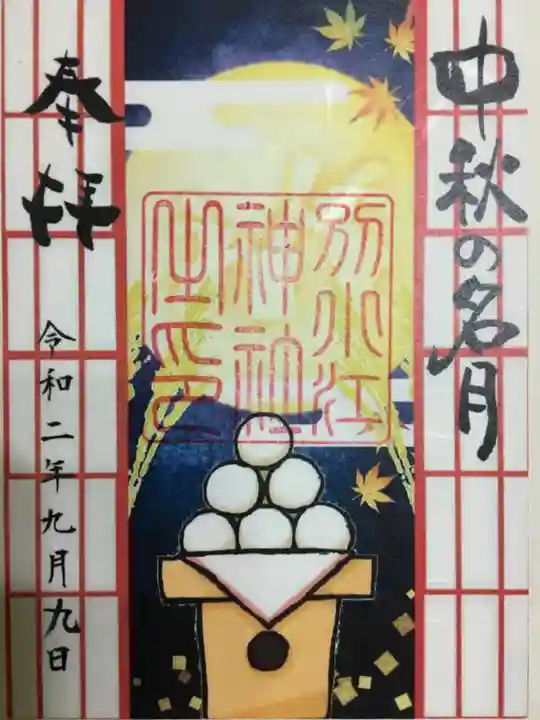 中秋の名月
別小江
神社
之印
奉拝
令和二年九月九日